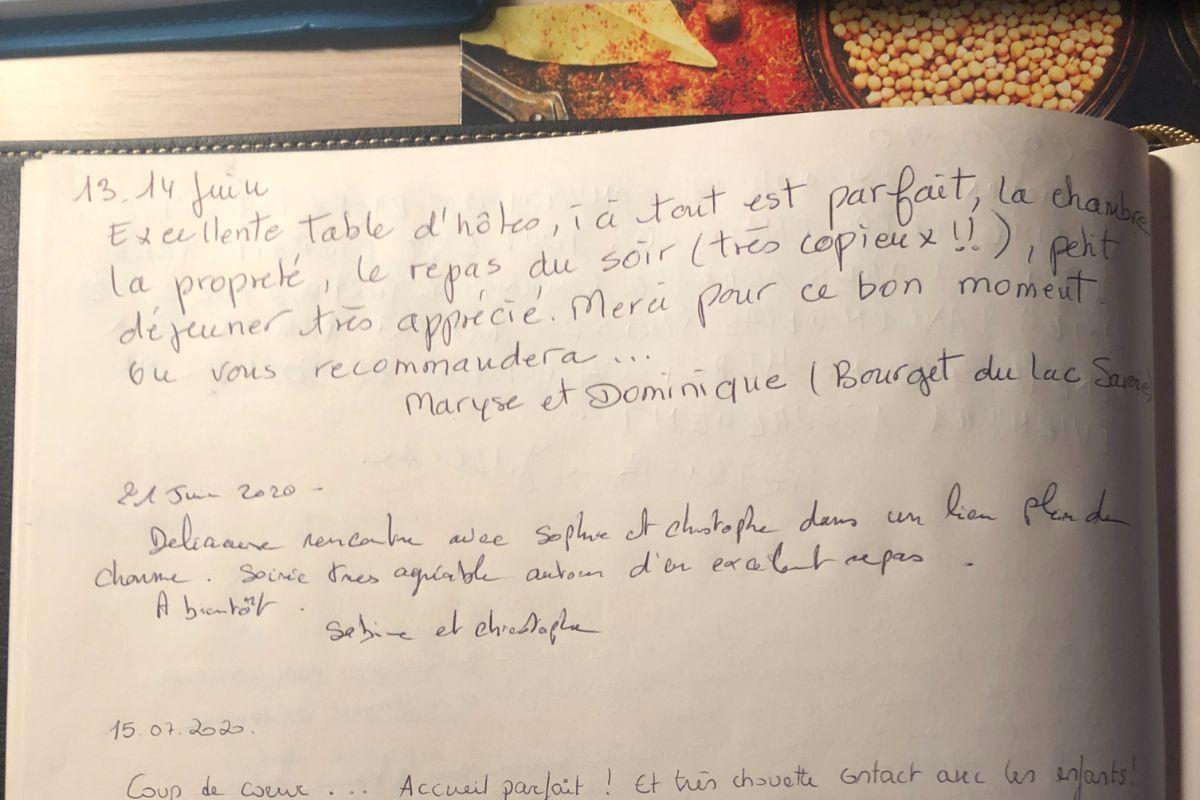 13.14 Juin
Excellente table d'hôtes, ici tout est parfait, la chambre
la propreté, le repas du soir (très copieux !!), petit
déjeuner très apprécié. Merci pour ce bon moment.
On vous recommandera ...
Maryse et Dominique (Bourget du lac Savoie)
21 Juin 2020 -
Delicieuse rencontre avec Sophie et christophe dans un lieu plein de
charme. Soirée très agréable autour d'un excelent repas.
A bientôt.
Sabine et christophe
15.07.2020.
Coup de coeur .... Accueil parfait ! Et très chouette contact avec les enfants!